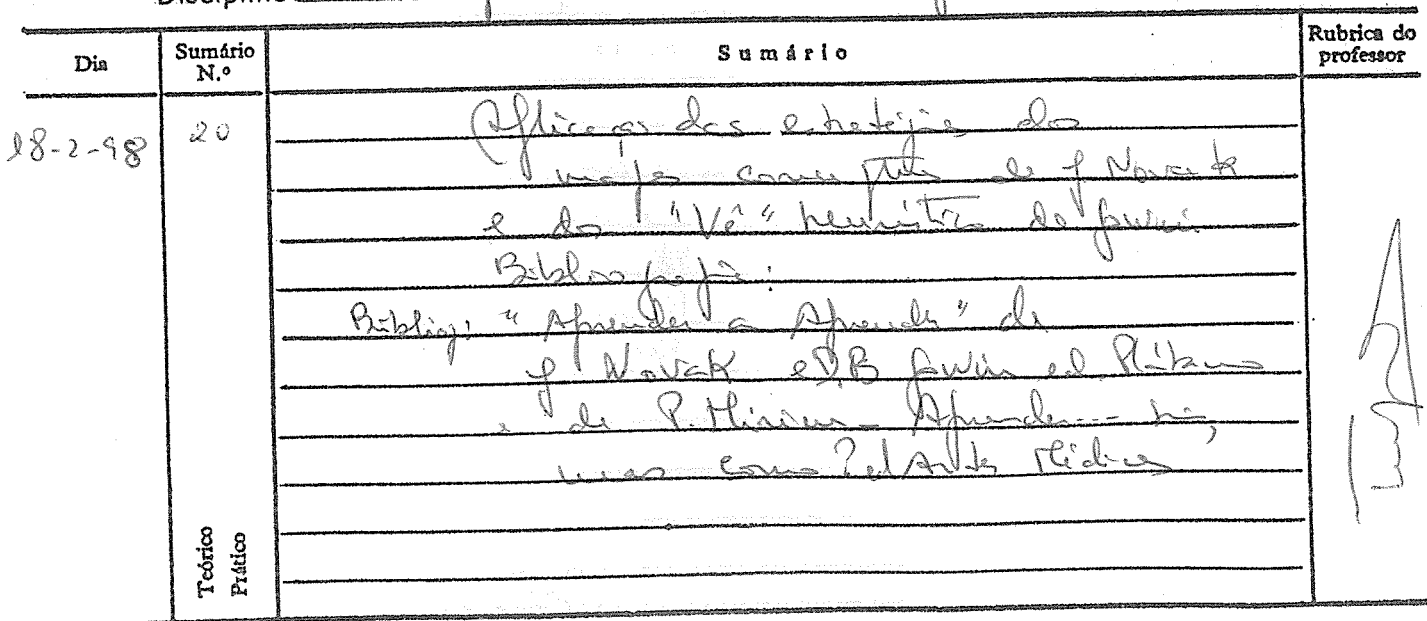 Disciplina
Dia
Sumário N.º
Sumário
Rubrica do professor
18-2-98
20
Aplicação das estratégias dos
mapas conceptuais de J Novak
e do "Vê" heurístico de Gowin.
Bibliografia:
Bibliog: "Aprender a Aprender" de
J Novak e D.B Gowin ed Plátano
e de P. Aprender... sim,
mas como? ed Artes Médicas
Teórico
Prático